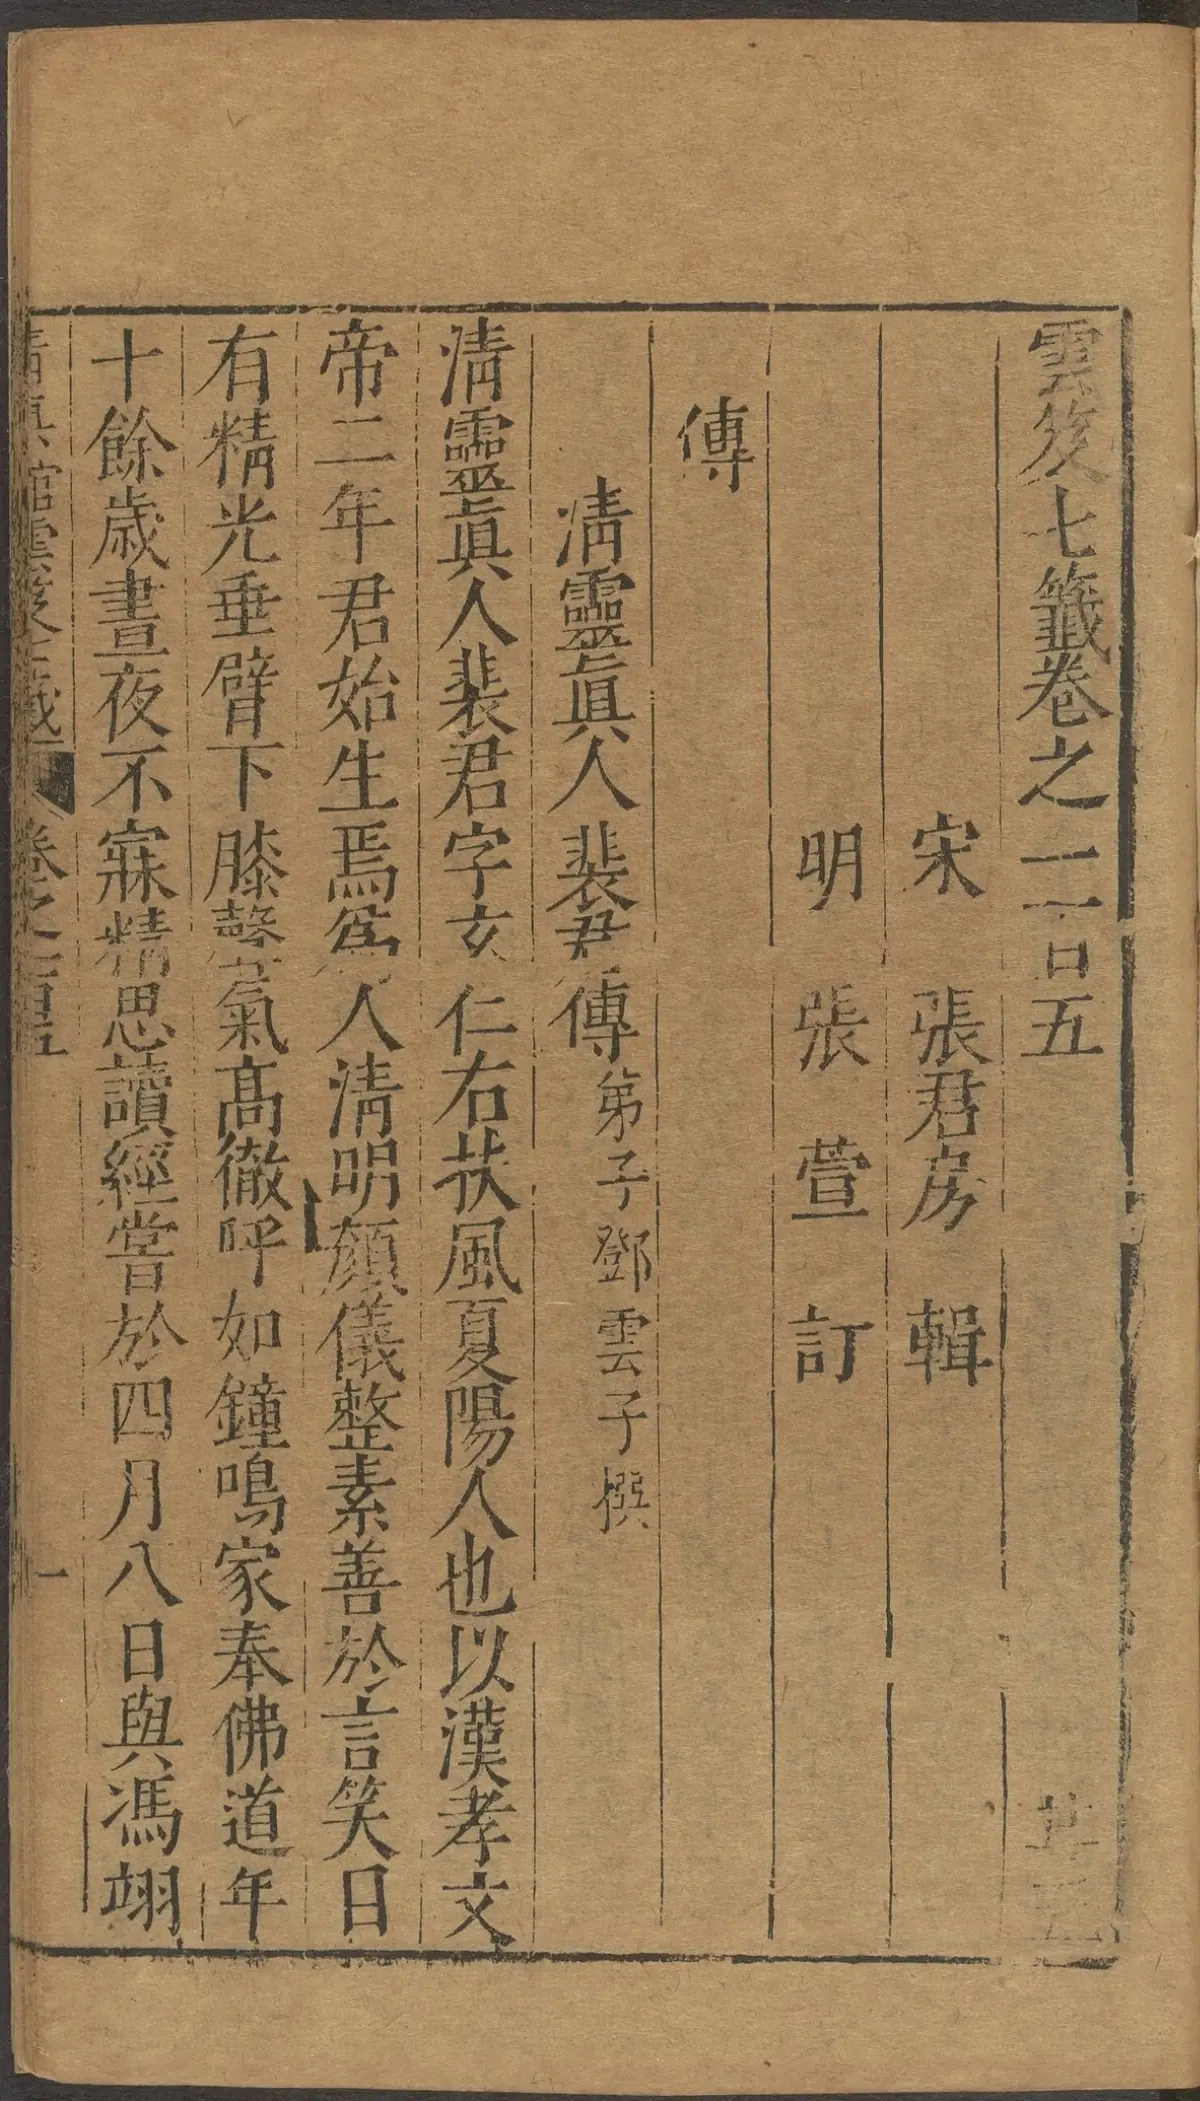 雲笈七籤卷之一百五
宋 張君房 輯
明 張萱 訂
傳
清靈眞人裴君傳 弟子鄧雲子撰
清靈眞人裴君字玄仁右扶風夏陽人也以漢孝文
帝二年君始生焉爲人清明顔儀整素善於言笑日
有精光垂臂下膝聲氣高徹呼如鐘鳴家奉佛道年
十餘歲晝夜不寐精思讀經嘗於四月八日與馮翊
清真館雲笈七籤 卷之一百五 一